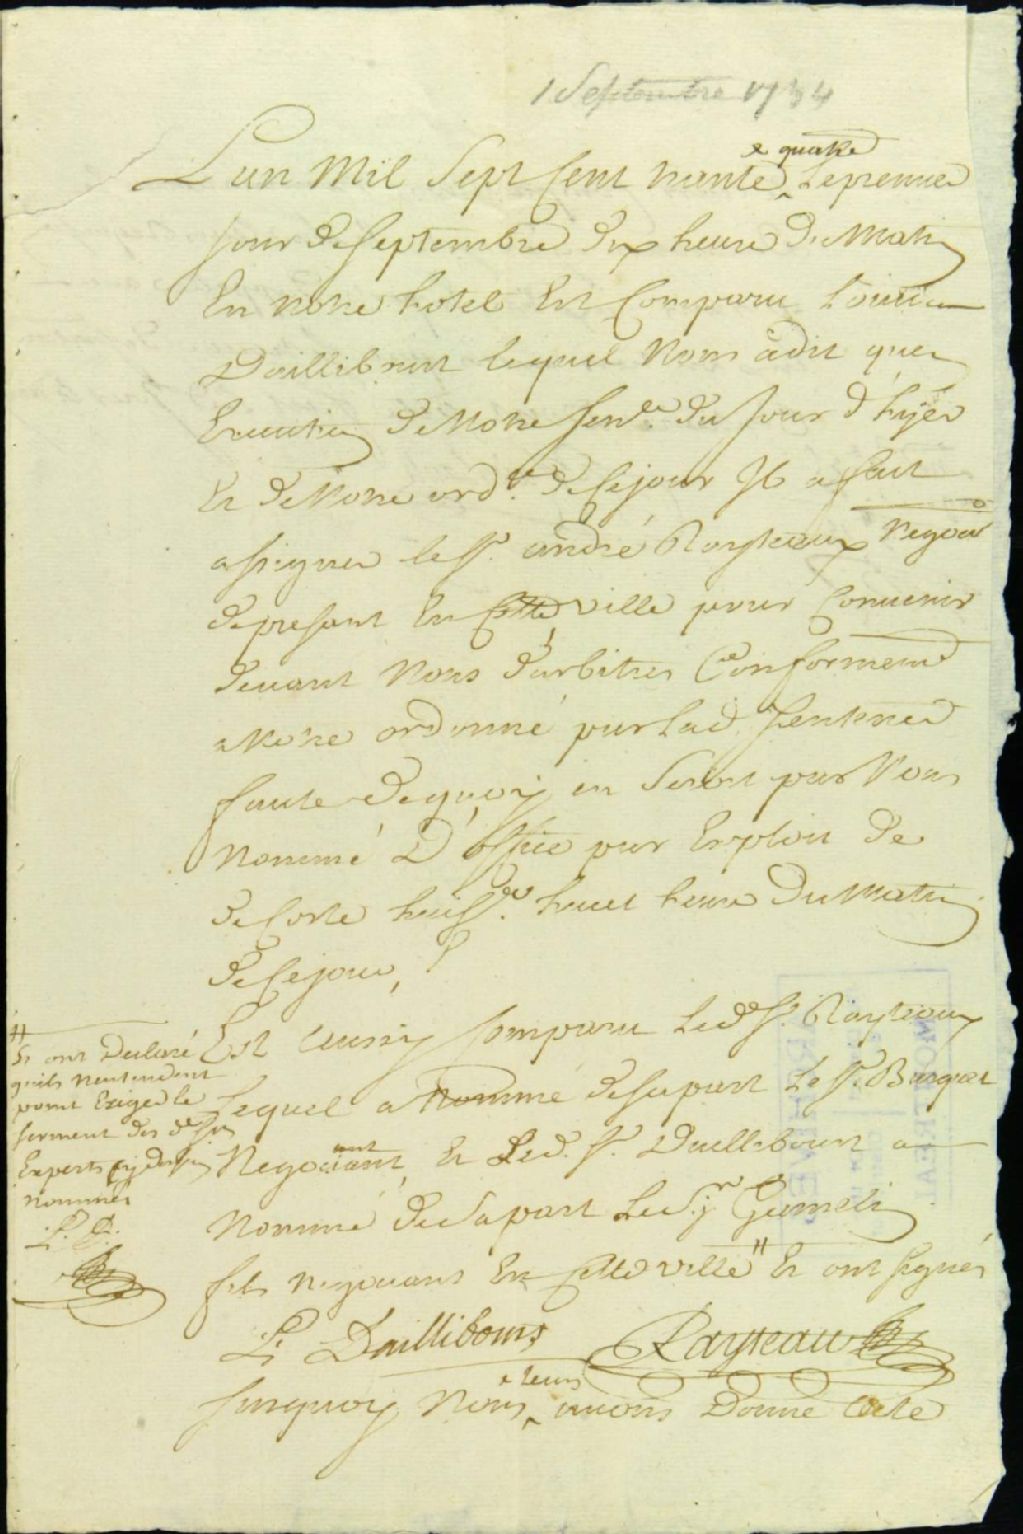 1 Septembre 1734
L'an Mil Sept Cent trante e quatre Le premier
Jour de Septembre dix heure Du Matin
En notre hotel Est Comparu Louis
Daillibout lequel Nous a dit qu'en
Execution de Notre sence. du Jour d'hyer
Et de Notre ordce. de Ce jour Il a fait
assigner le Sr. andré Rayteaux Negoant
de presant En Cette ville pour Convenir
devant Nous d'arbitres Conformement
a Notre ordonné par lad. Sentence
faute de quoy en Seront par Nous
Nommé D'office par Exploit De
De Coste huissr. huit heure Du Matin
de Ce jour,
Est Aussy Comparu Led. Sr. Rayteaux
Lequel a Nommé de sa part Le Sr. Burgat
Negociant, Et Led. Sr. Daillebout a
Nommé de Sa part Led. Sr. Gamelin
fils negociant En Cette ville # Et ont signés
# Et ont Declaré
qu'ils n'entendent
point Exiger le
serment des de Srs
Experts cy dessus
nommés
L. D.
L. Daillibout Rayteau
surquoy Nous leurs avons Donné Acte